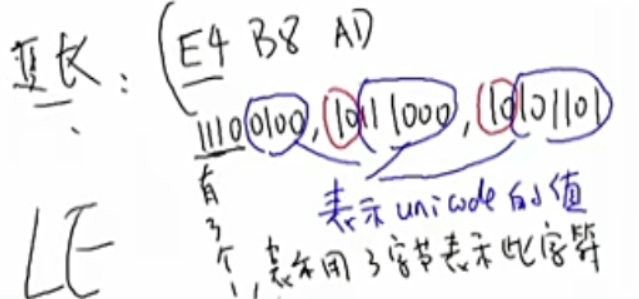 变长： E4 B8 AD
11100100, 10111000, 10101101
表示unicode的值
有3个1,表示用3字节表示此字符
LE